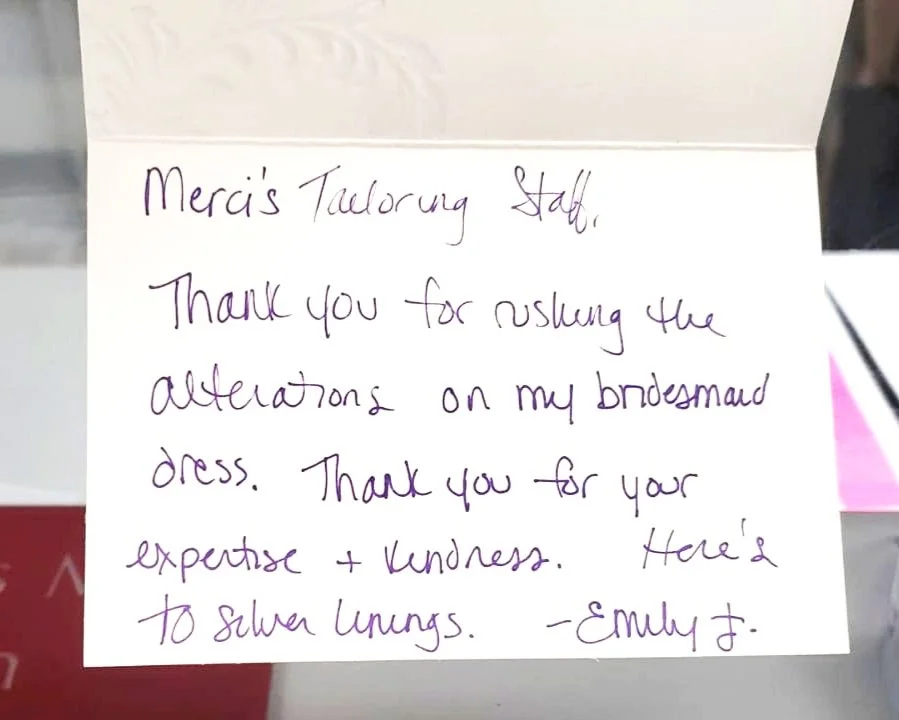 Merci's Tailoring Staff,
Thank you for rushing the
alterations on my bridesmaid
dress. Thank you for your
expertise + kindness. Here's
to silver linings. -Emily J.